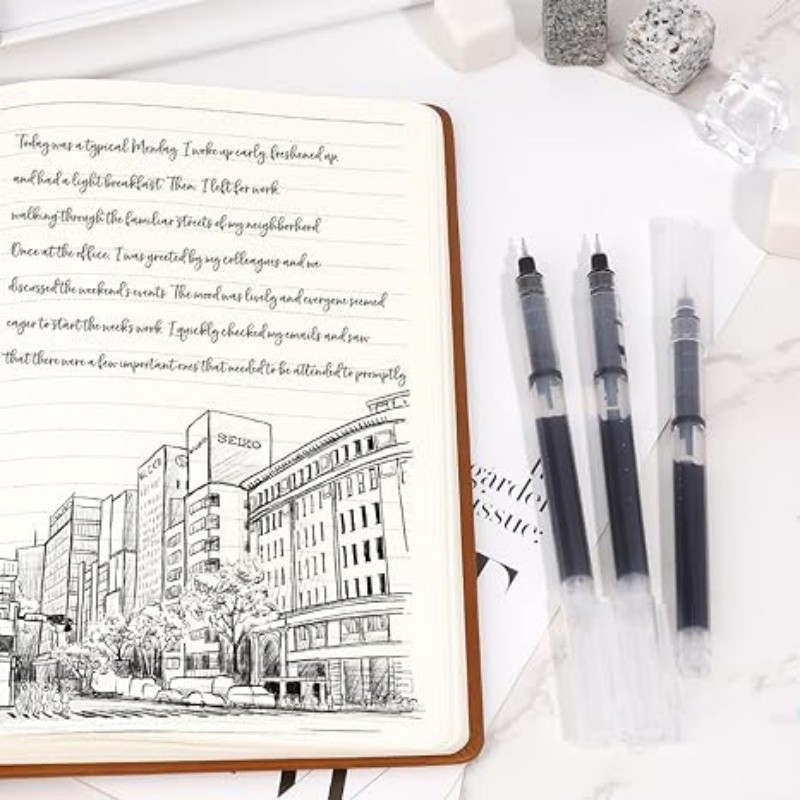 Today was a typical Monday. I woke up early, freshened up,
and had a light breakfast. Then, I left for work
walking through the familiar streets of my neighborhood
Once at the office, I was greeted by my colleagues and we
discussed the weekend's events. The mood was lively and everyone seemed
eager to start the week's work. I quickly checked my emails and saw
that there were a few important ones that needed to be attended to promptly
SEIKO
garden
issue:
T